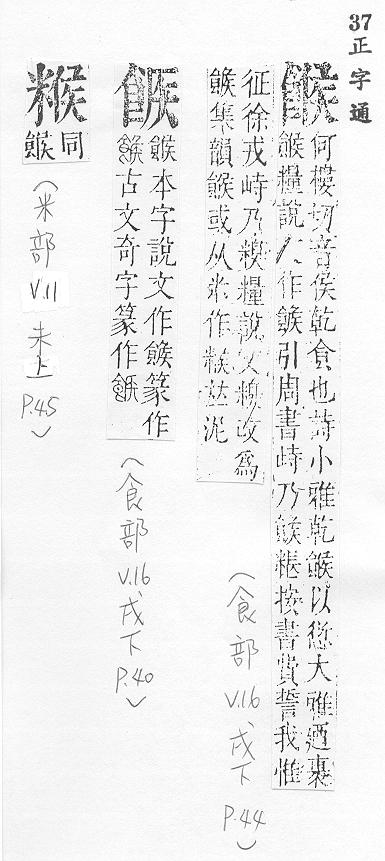 37
正字通
餱
何樓切音侯乾食也詩小雅乾餱以愆大雅迺裹
餱糧說文作餱引周書峙乃餱粻按書費誓我惟
征徐戎峙乃糗糧說文糗改為
餱集韻餱或从米作糇𠀤泥
(食部 V.16 戌下 P.44)
餱本字說文作餱篆作
古文奇字篆作
(食部 V.16 戌下 P.40)
糇
同
餱
(米部 V.11 未上 P.45)